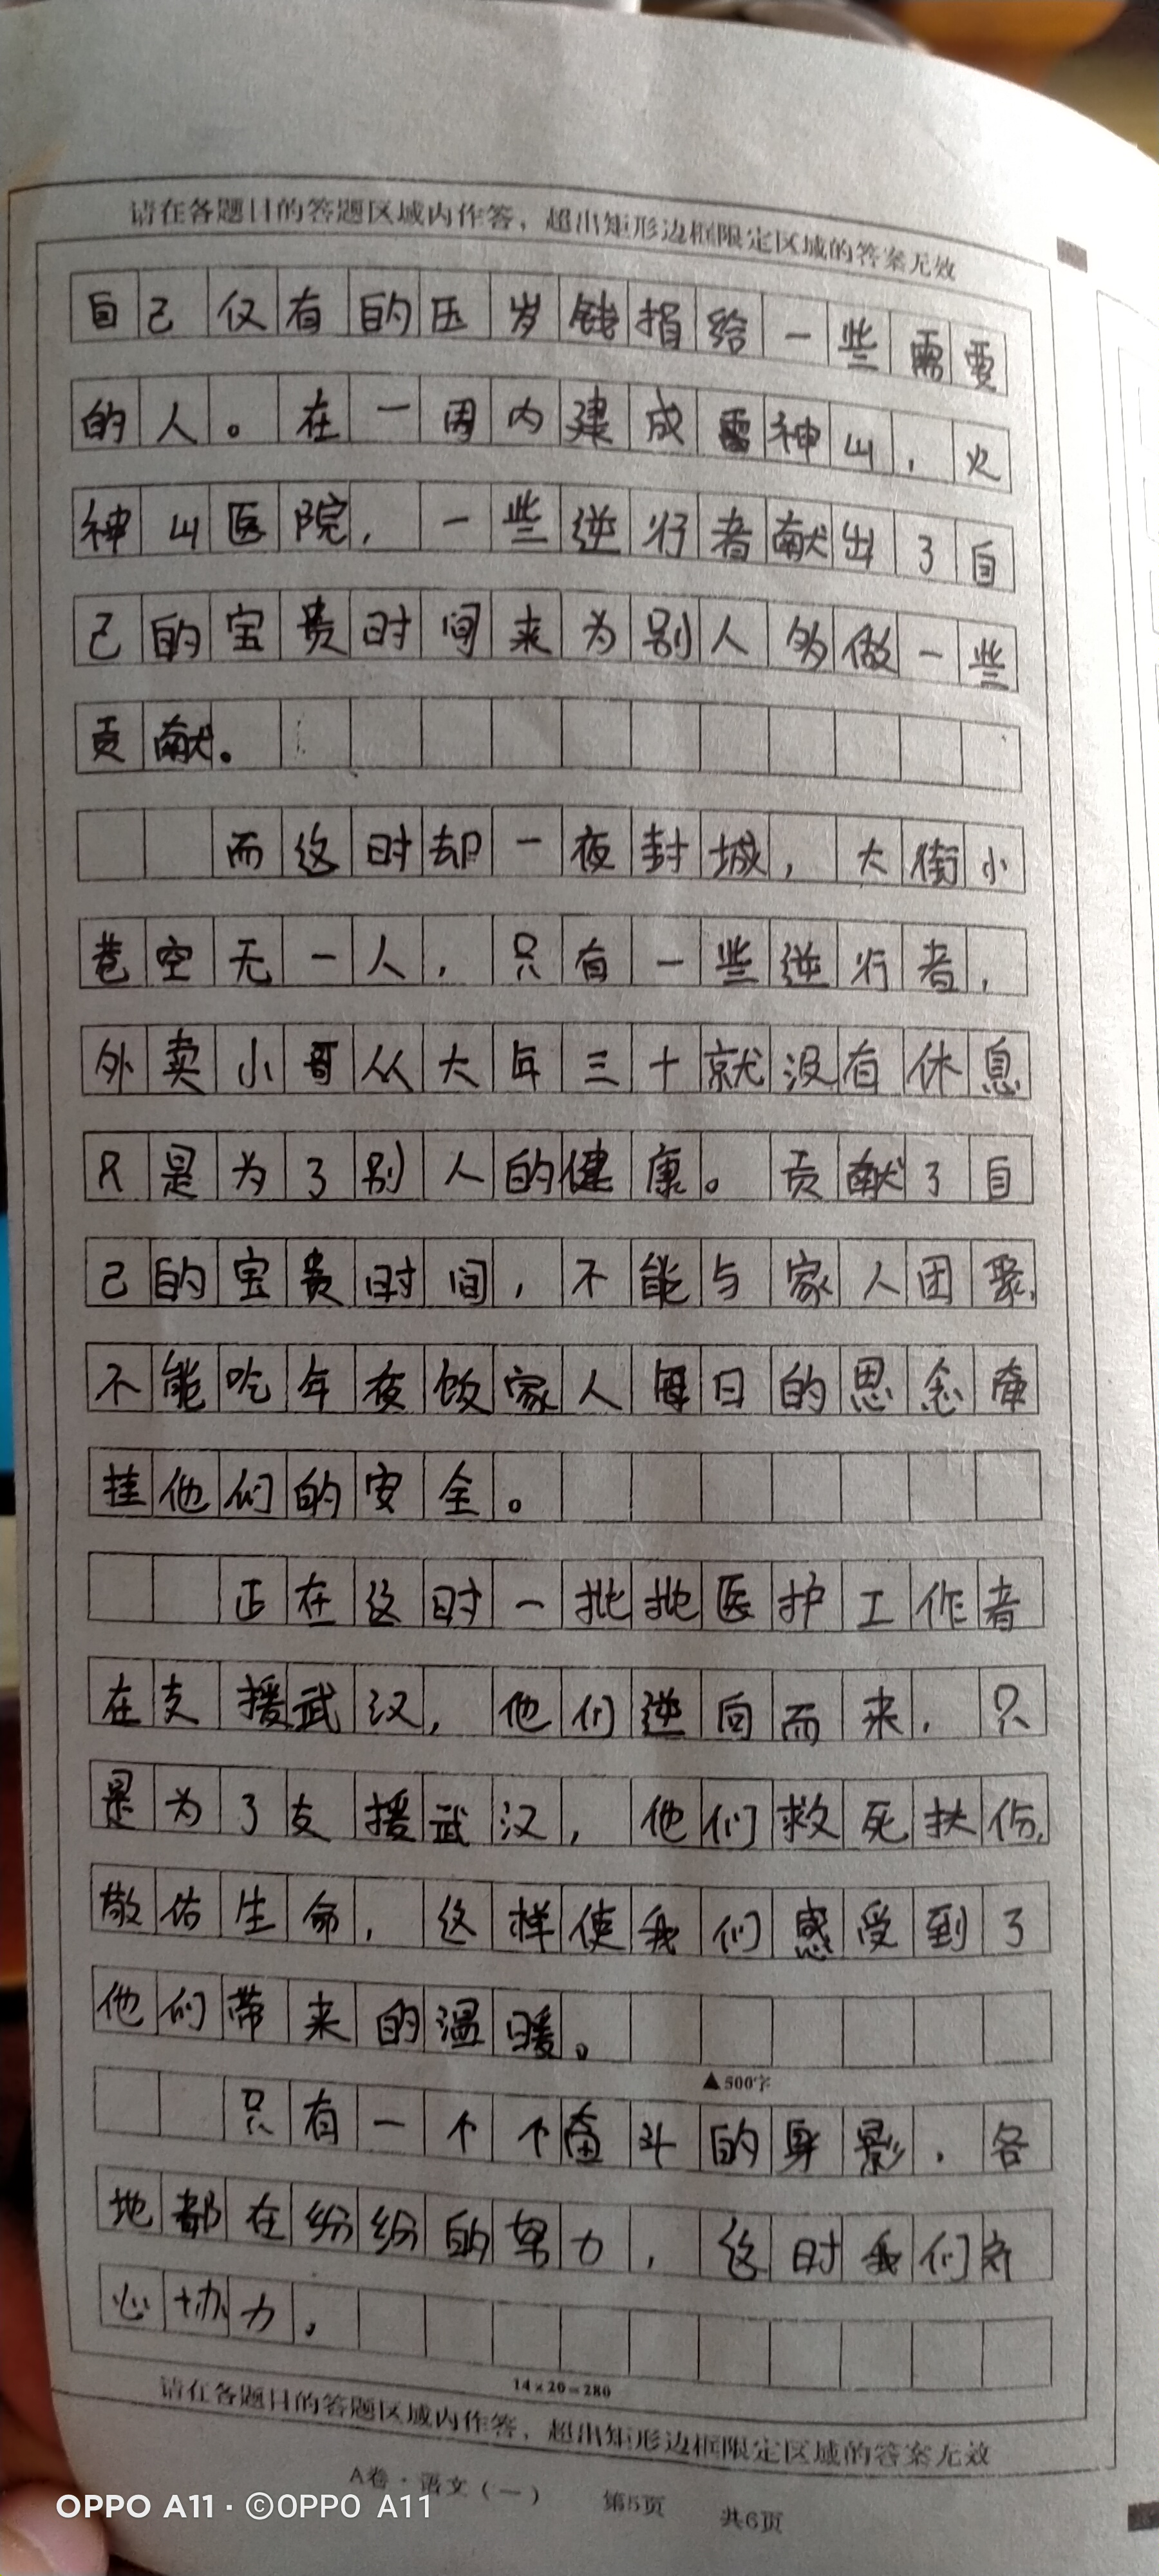 请在各题目的答题区域内作答，超出矩形边框限定区域的答案无效
自己仅有的压岁钱捐给一些需要
的人。在一周内建成雷神山，火
神山医院，一些逆行者献出了自
己的宝贵时间来为别人多做一些
贡献。
而这时却一夜封城，大街小
巷空无一人，只有一些逆行者，
外卖小哥从大年三十就没有休息
只是为了别人的健康。贡献了自
己的宝贵时间，不能与家人团聚，
不能吃年夜饭家人每日的思念牵
挂他们的安全。
正在这时一批批医护工作者
在支援武汉，他们逆向而来，只
是为了支援武汉，他们救死扶伤，
敬佑生命，这样使我们感受到了
他们带来的温暖。
▲500字
只有一个个奋斗的身影，各
地都在纷纷的努力，这时我们齐
心协力。
14×20=280
请在各题目的答题区域内作答，超出矩形边框限定区域的答案无效
A卷·语文（一） 第5页 共6页
OPPO A11·©OPPO A11